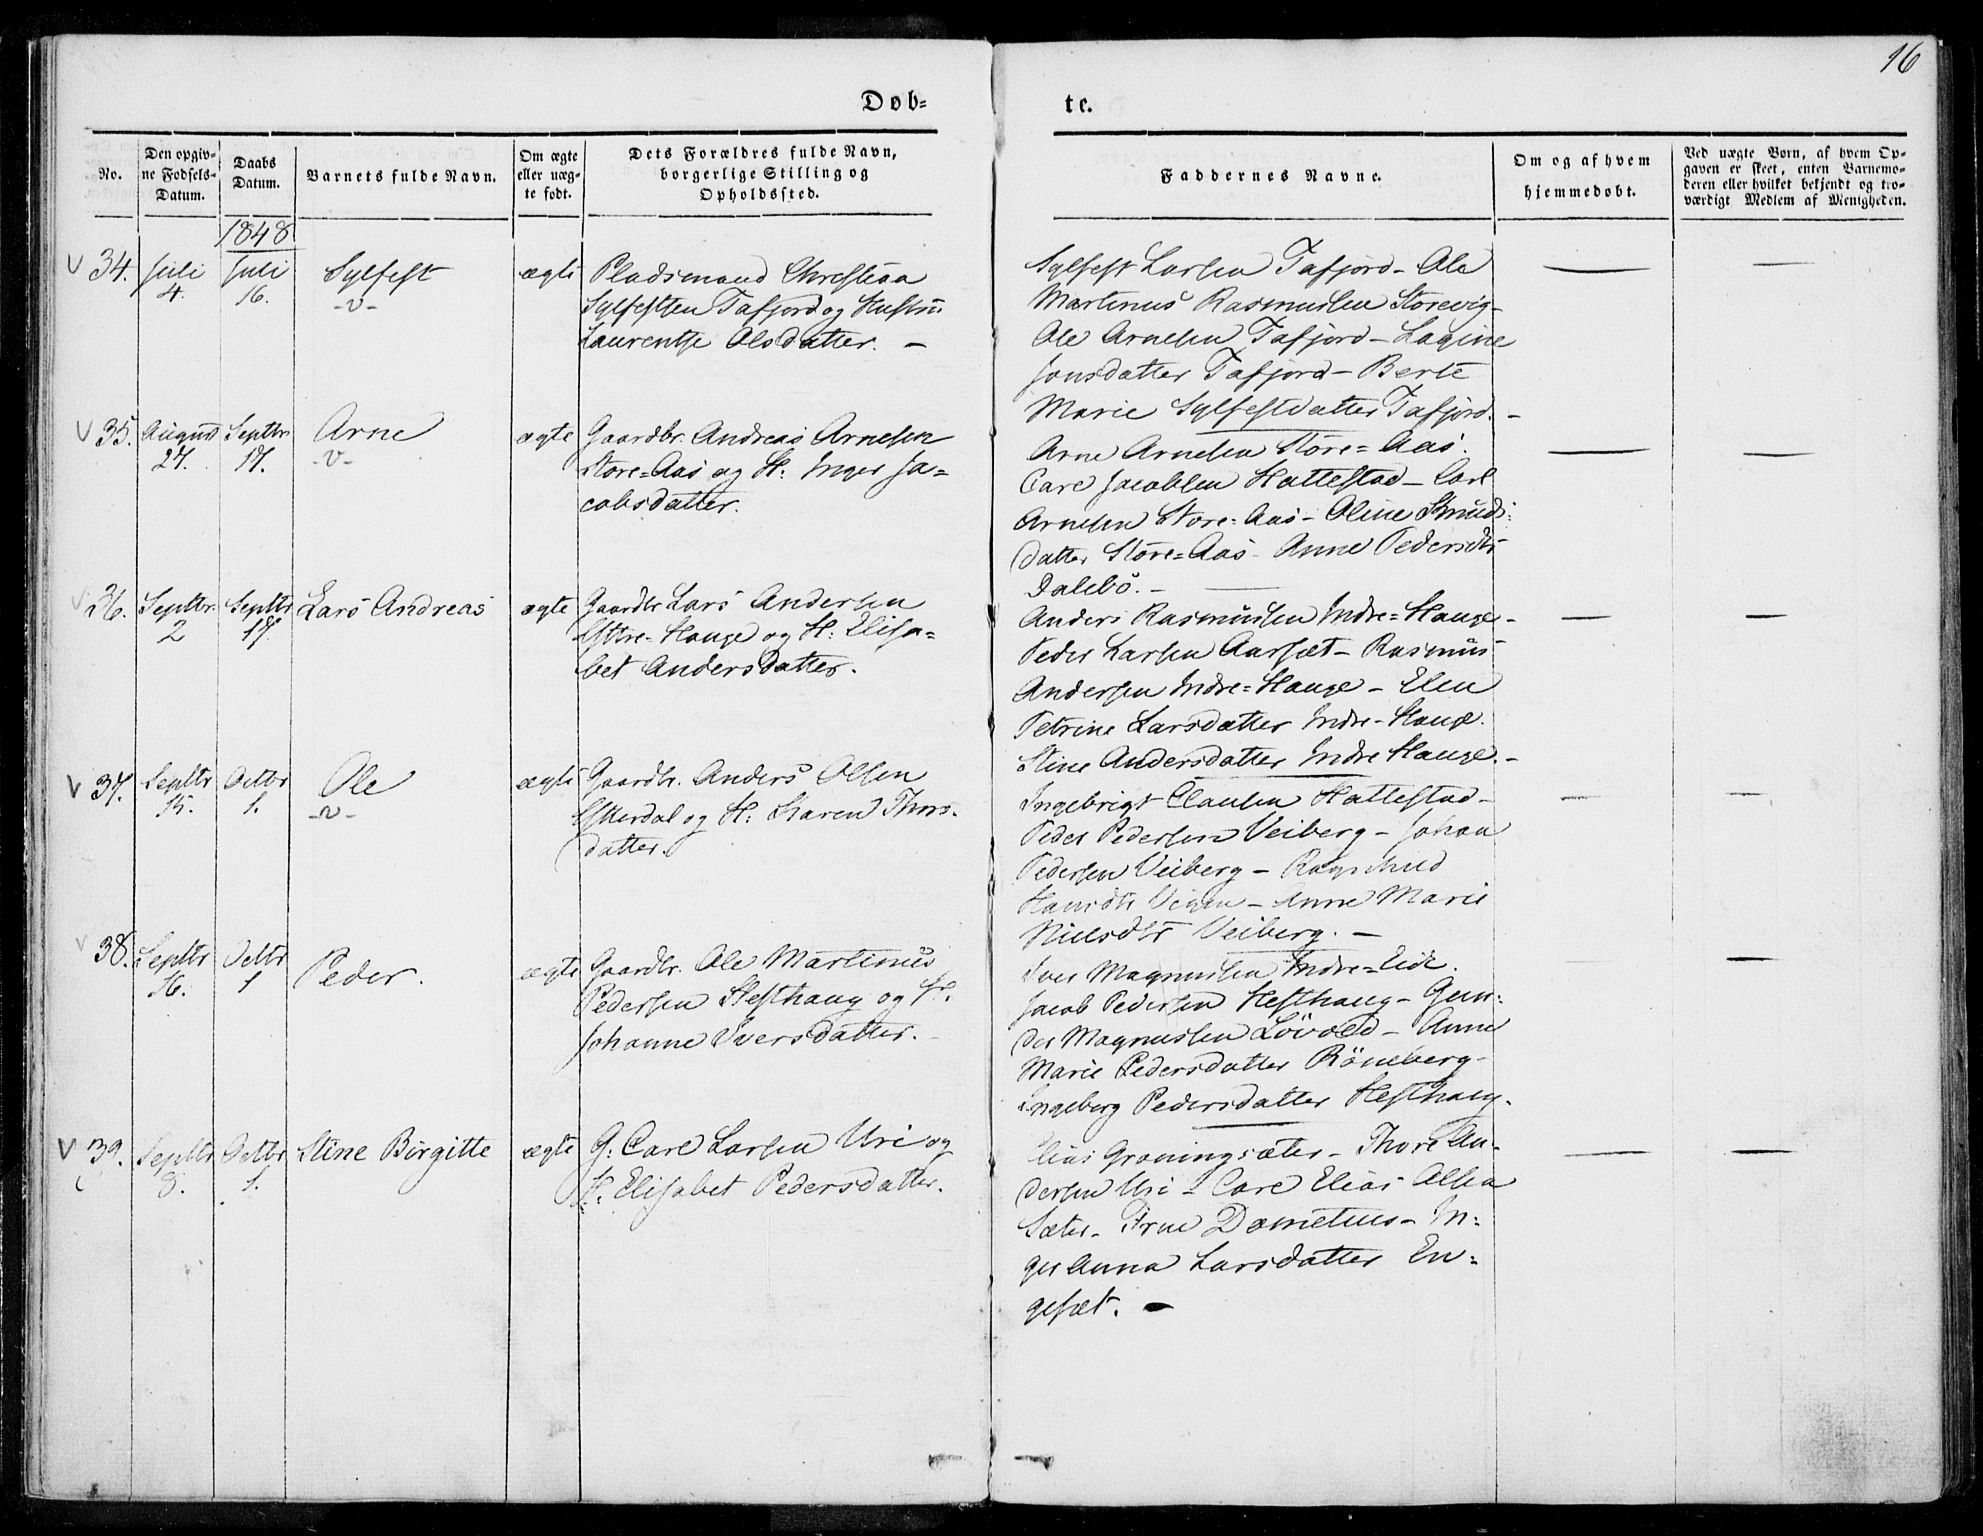 16
Døb-
te.
No.
Den opgiv-
ne Fødsels-
Datum.
Daabs
Datum.
Barnets fulde Navn.
Om ægte
eller uæg-
te født.
Dets Forældres fulde Navn,
borgerlige Stilling og
Opholdssted.
Faddernes Navne.
Om og af hvem
hjemmedøbt.
Ved uægte Børn, af hvem Op-
gaven er skeet, enten Barnemo-
deren eller hvilket bekjendt og tro-
værdigt Medlem af Menigheden.
1848
34.
Juli
4.
Juli
16.
Sylfest
-v-
ægte
Pladsmand Christian
Sylfestsen Tafjord og Hustru
Laurentse Olsdatter. -
Sylfest Larsen Tafjord - Ole
Martinus Rasmussen Storevig-
Ole Arnesen Tafjord - Lagine
Jonsdatter Tafjord - Berte
Marie Sylfestdatter Tafjord. -
35.
August
27.
Septbr
17.
Arne
-v-
ægte
Gaardbr. Andreas Arnesen
Store=Aas og H: Inger Ja=
cobsdatter.
Arne Arnesen Store=Aas.
Carl Jacobsen Hattestad - Carl
Arnesen Store=Aas - Oline Knuds:
datter Store=Aas - Anne Pedersdtr
Dalebö. -
36.
Septbr.
2
Septbr
17.
Lars Andreas
ægte
Gaardbr Lars Andersen
Yttre-Hauge og H: Elisa=
bet Andersdatter.
Anders Rasmussen Indre=Hauge -
Peder Larsen Aarset - Rasmus
Andersen Indre=Hauge - Elen
Petrine Larsdatter Indre-Hauge.
Stine Andersdatter Indre Hauge. -
37.
Septbr
15.
Octbr
1.
Ole
-v-
ægte
Gaardbr. Anders Olsen
Ytterdal og H: Karen Thors-
datter.
Ingebrigt Clausen Hattestad -
Peder Pedersen Veiberg - Johan
Pedersen Veiberg - Ragnhild
Hansdtr - Anne Marie
Nielsdtr Veiberg. -
38.
Septbr
16.
Octbr
1
Peder.
ægte
Gaardbr. Ole Martinus
Pedersen Hesthaug og H.
Johanne Iversdatter. -
Iver Magnussen Indre=Eide.
Jacob Pedersen Hesthaug - Gun:
der Magnussen Lövold - Anne
Marie Pedersdatter Röneberg -
Ingeborg Pedersdatter Hesthaug.
39.
Septbr
8.
Octbr
1.
Stine Birgitte
ægte
G: Carl Larsen Uri og
H. Elisabet Pedersdatter.
Elias Groningsæter - Thore An-
dersen Uri - Carl Elias Olsen
Sæter - Frue Dometius - In=
ger Anna Larsdatter En=
geset. -